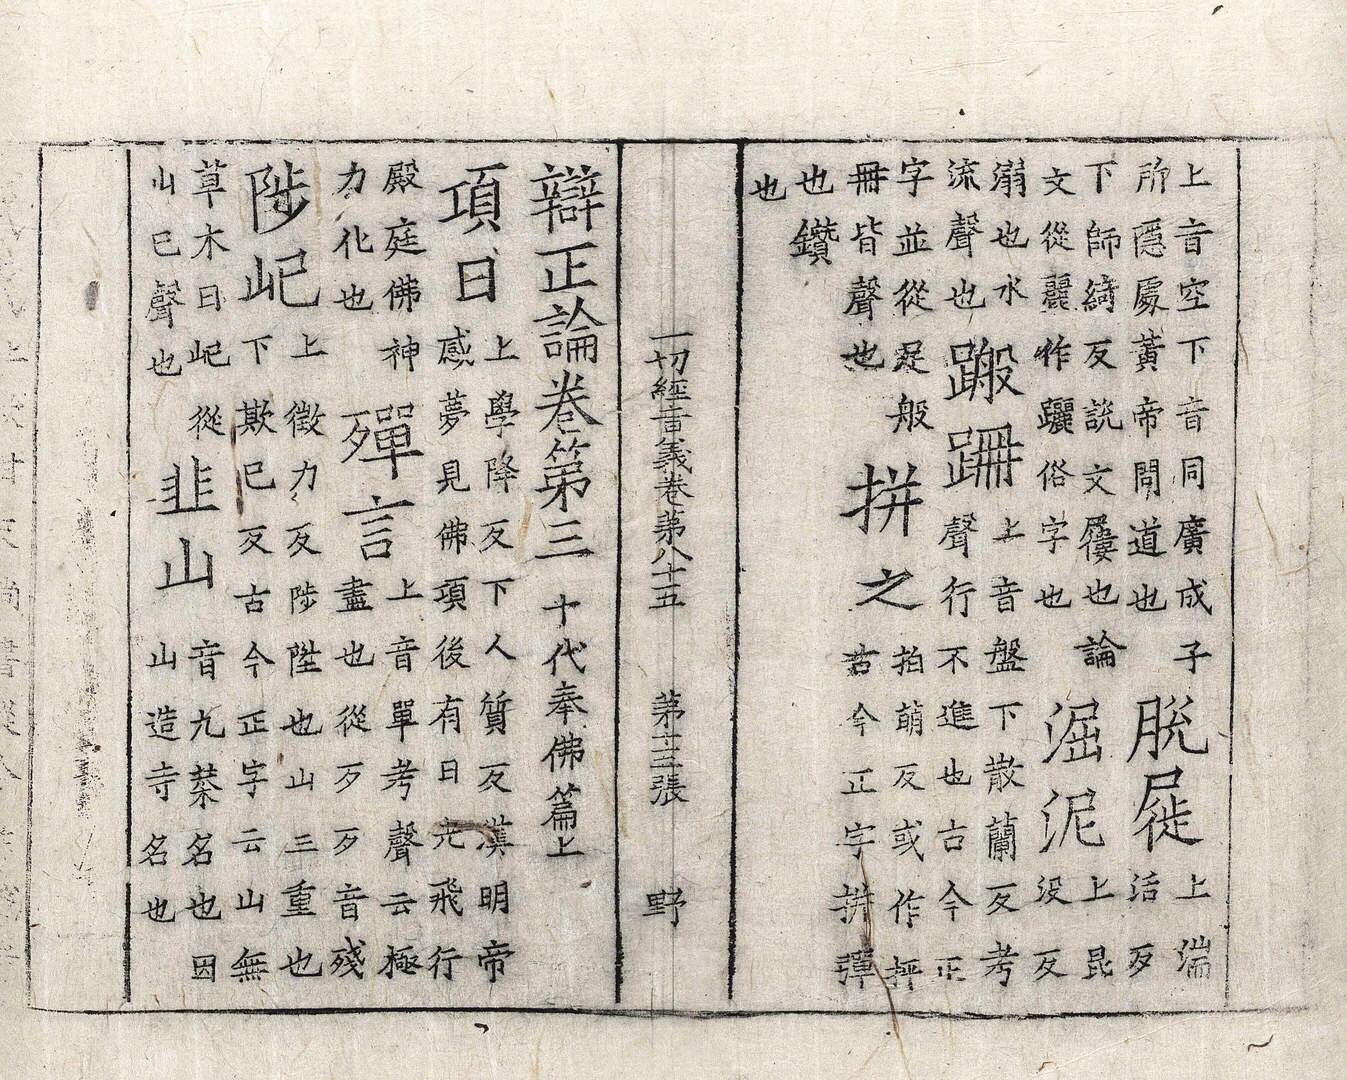 上音空下音同廣成子
所隱處黃帝問道也
脫屣
上湍
活反
下師綺反說文屨也論
文從麗作躧俗字也
淈泥
上昆
没反
溺也水
流聲也
跚
上音盤下散蘭反考
聲行不進也古今正
字並從足般
冊皆聲也
拼之
拍萌反或作抨
古今正字拼彈
也鑽
也
一切經音義卷苐八十五 苐十三張 野
辯正論卷第三 十代奉佛篇上
項日
上學降反下人質反漢明帝
感夢見佛項後有日光飛行
殿庭佛神
力化也
殫言
上音單考聲云極
盡也從歹歹音殘
陟屺
上徵力反陟陞也山三重也
下欺巳反古今正字云山無
草木曰屺從
山巳聲也
韭山
音九菜名也因
山造寺名也